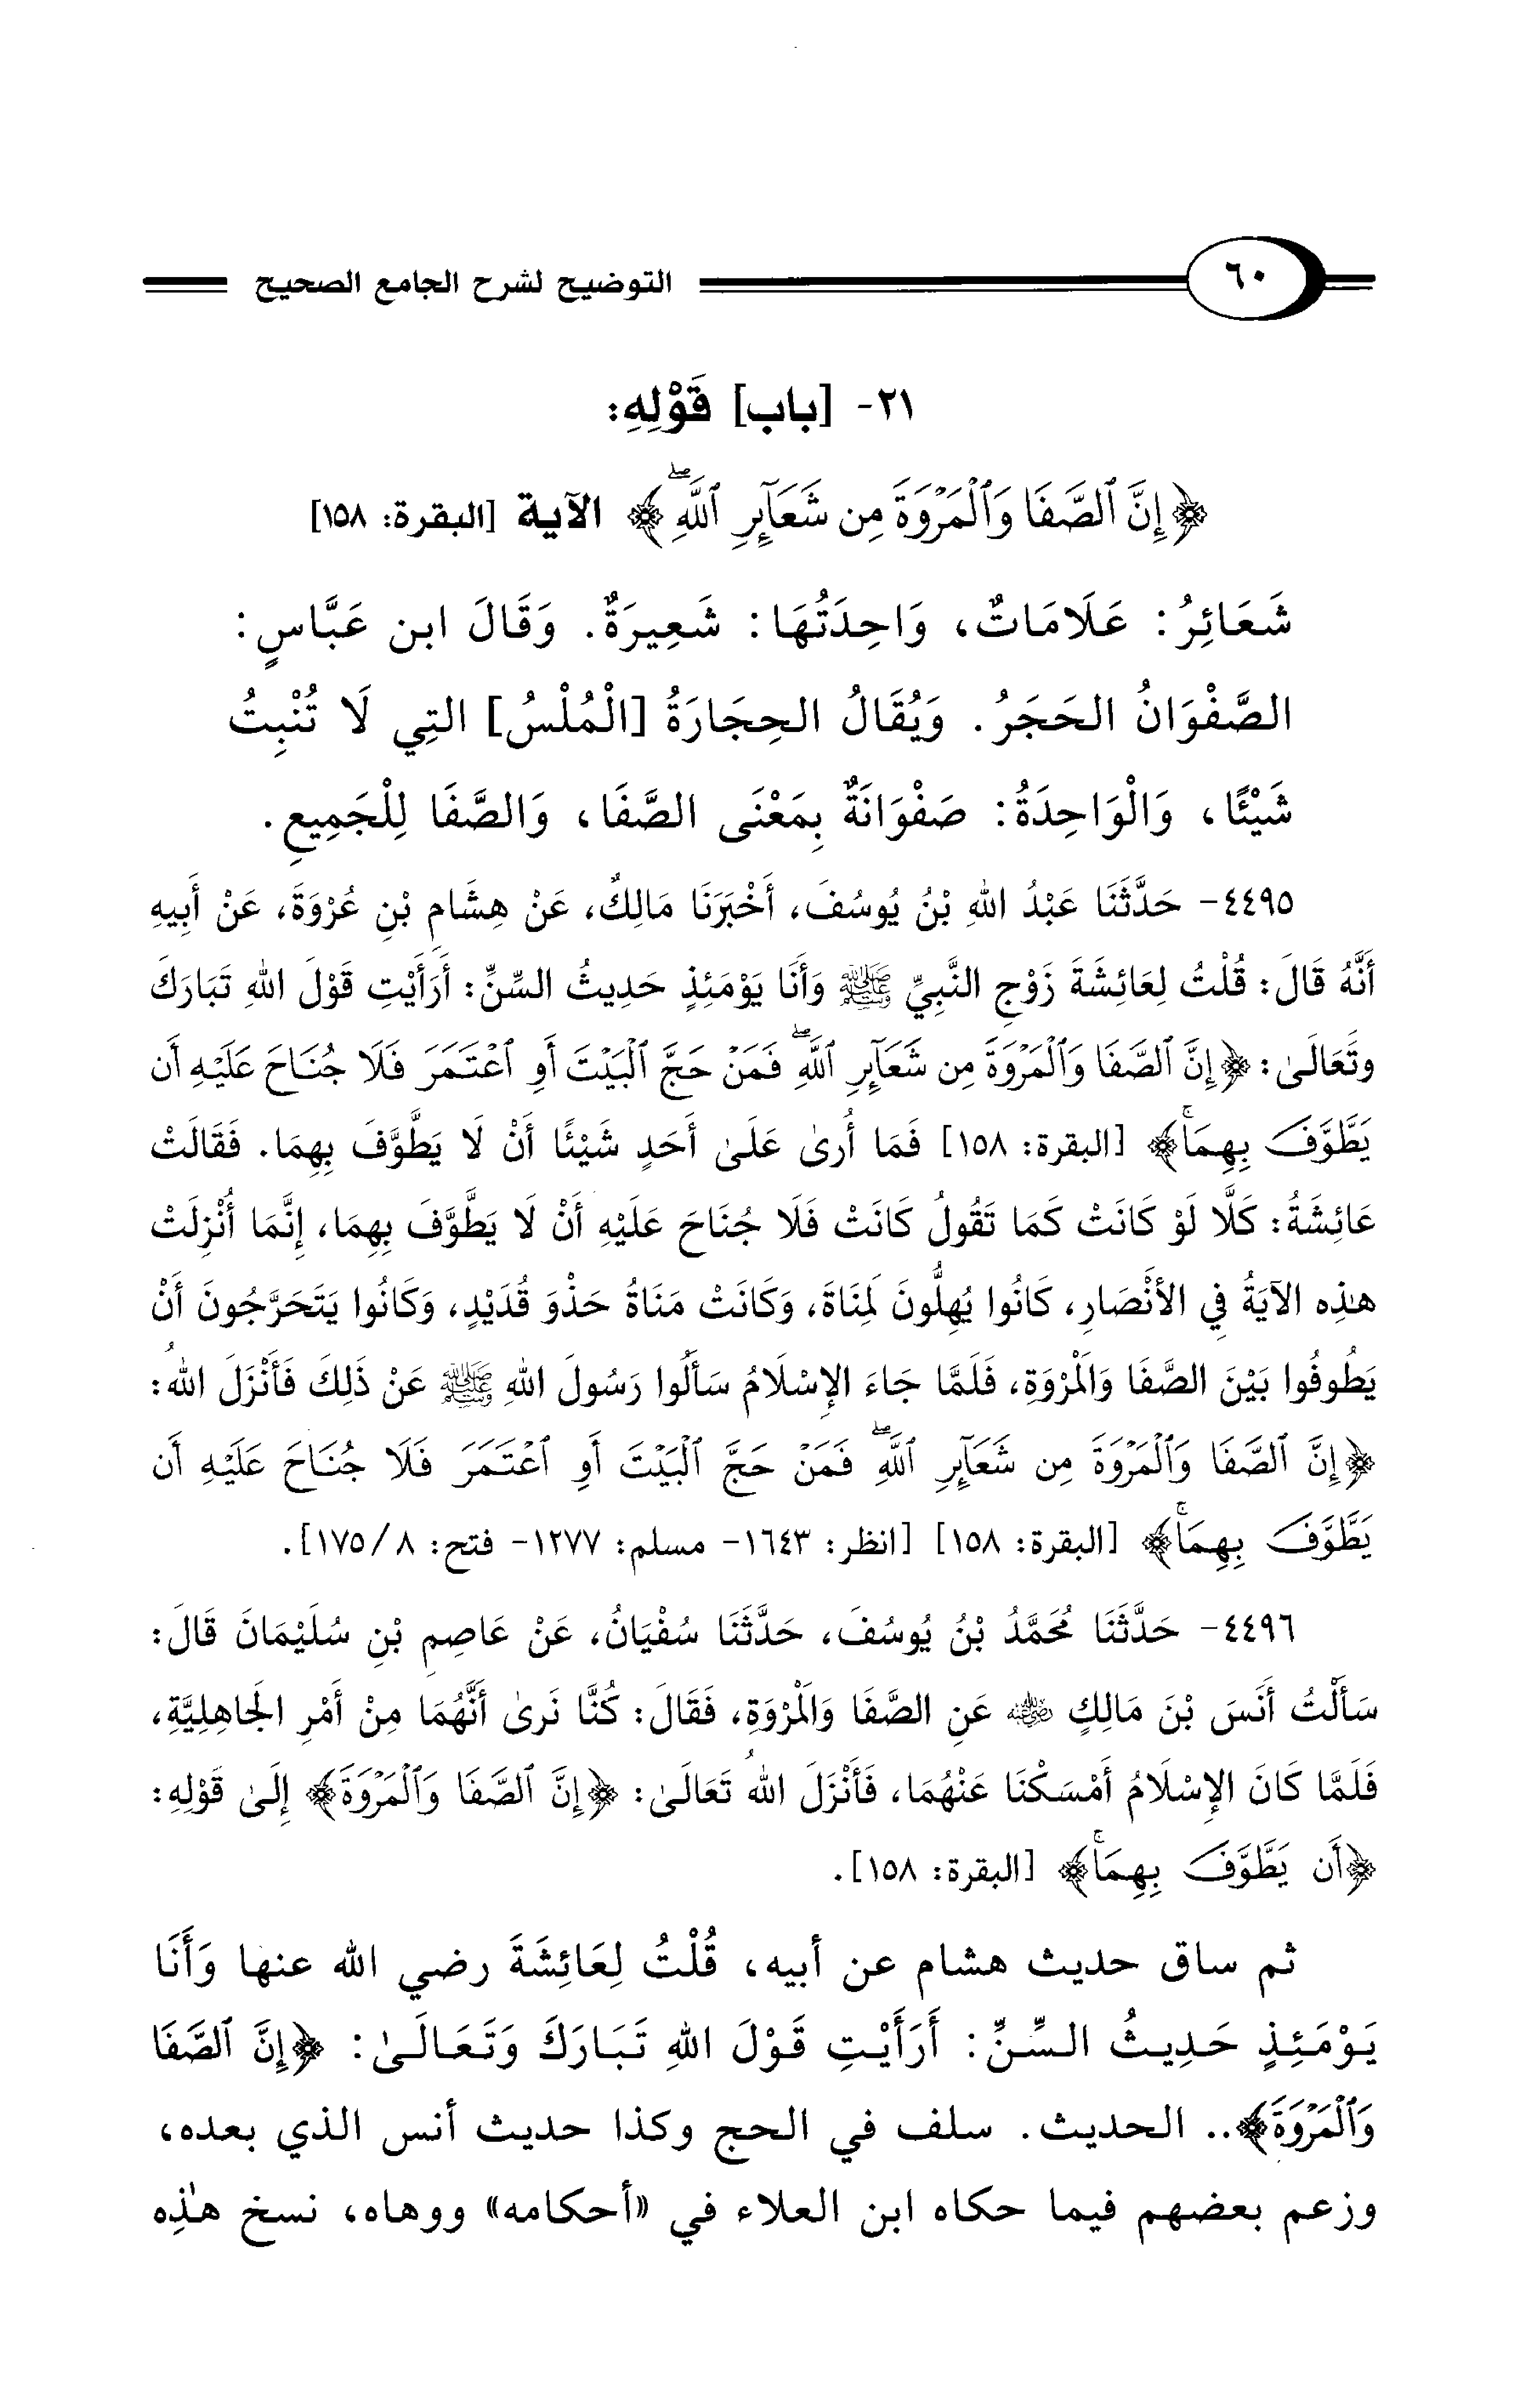 ٦٠
التوضيح لشرح الجامع الصحيح
٢١- [باب] قَوْلِهِ:
﴿إِنَّ ٱلصَّفَا وَٱلْمَرْوَةَ مِن شَعَآئِرِ ٱللَّهِۖ﴾ الآية [البقرة: ١٥٨]
شَعَائِرُ: عَلَامَاتٌ، وَاحِدَتُهَا: شَعِيرَةٌ. وَقَالَ ابن عَبَّاسٍ:
الصَّفْوَانُ الحَجَرُ. وَيُقَالُ الحِجَارَةُ [الْمُلْسُ] التِي لَا تُنْبِتُ
شَيْئًا، وَالْوَاحِدَةُ: صَفْوَانَةٌ بِمَعْنَى الصَّفَا، وَالصَّفَا لِلْجَمِيعِ.
٤٤٩٥- حَدَّثَنَا عَبْدُ اللهِ بْنُ يُوسُفَ، أَخْبَرَنَا مَالِكٌ، عَنْ هِشَامِ بْنِ عُرْوَةَ، عَنْ أَبِيهِ
أَنَّهُ قَالَ: قُلْتُ لِعَائِشَةَ زَوْجِ النَّبِيِّ ﷺ وَأَنَا يَوْمَئِذٍ حَدِيثُ السِّنِّ: أَرَأَيْتِ قَوْلَ اللهِ تَبَارَكَ
وتَعَالَىٰ: ﴿إِنَّ ٱلصَّفَا وَٱلْمَرْوَةَ مِن شَعَآئِرِ ٱللَّهِۖ فَمَنْ حَجَّ ٱلْبَيْتَ أَوِ ٱعْتَمَرَ فَلَا جُنَاحَ عَلَيْهِ أَن
يَطَّوَّفَ بِهِمَاۚ﴾ [البقرة: ١٥٨] فَمَا أُرىٰ عَلَىٰ أَحَدٍ شَيْئًا أَنْ لَا يَطَّوَّفَ بِهِمَا. فَقَالَتْ
عَائِشَةُ: كَلَّا لَوْ كَانَتْ كَمَا تَقُولُ كَانَتْ فَلَا جُنَاحَ عَلَيْهِ أَنْ لَا يَطَّوَّفَ بِهِمَا، إِنَّمَا أُنْزِلَتْ
هٰذِه الآيَةُ فِي الأَنْصَارِ، كَانُوا يُهِلُّونَ لِمَنَاةَ، وَكَانَتْ مَنَاةُ حَذْوَ قُدَيْدٍ، وَكَانُوا يَتَحَرَّجُونَ أَنْ
يَطُوفُوا بَيْنَ الصَّفَا وَالْمَرْوَةِ، فَلَمَّا جَاءَ الإِسْلَامُ سَأَلُوا رَسُولَ اللهِ ﷺ عَنْ ذَلِكَ فَأَنْزَلَ اللهُ:
﴿إِنَّ ٱلصَّفَا وَٱلْمَرْوَةَ مِن شَعَآئِرِ ٱللَّهِۖ فَمَنْ حَجَّ ٱلْبَيْتَ أَوِ ٱعْتَمَرَ فَلَا جُنَاحَ عَلَيْهِ أَن
يَطَّوَّفَ بِهِمَاۚ﴾ [البقرة: ١٥٨] [انظر: ١٦٤٣- مسلم: ١٢٧٧- فتح: ٨/ ١٧٥].
٤٤٩٦- حَدَّثَنَا مُحَمَّدُ بْنُ يُوسُفَ، حَدَّثَنَا سُفْيَانُ، عَنْ عَاصِمِ بْنِ سُلَيْمَانَ قَالَ:
سَأَلْتُ أَنَسَ بْنَ مَالِكٍ رضي الله عنه عَنِ الصَّفَا وَالْمَرْوَةِ، فَقَالَ: كُنَّا نَرىٰ أَنَّهُمَا مِنْ أَمْرِ الجَاهِلِيَّةِ،
فَلَمَّا كَانَ الإِسْلَامُ أَمْسَكْنَا عَنْهُمَا، فَأَنْزَلَ اللهُ تَعَالَىٰ: ﴿إِنَّ ٱلصَّفَا وَٱلْمَرْوَةَ﴾ إِلَىٰ قَوْلِهِ:
﴿أَن يَطَّوَّفَ بِهِمَاۚ﴾ [البقرة: ١٥٨].
ثم ساق حديث هشام عن أبيه، قُلْتُ لِعَائِشَةَ رضي الله عنها وَأَنَا
يَوْمَئِذٍ حَدِيثُ السِّنِّ: أَرَأَيْتِ قَوْلَ اللهِ تَبَارَكَ وَتَعَالَىٰ: ﴿إِنَّ ٱلصَّفَا
وَٱلْمَرْوَةَ﴾.. الحديث. سلف في الحج وكذا حديث أنس الذي بعده،
وزعم بعضهم فيما حكاه ابن العلاء في «أحكامه» ووهاه، نسخ هٰذِه